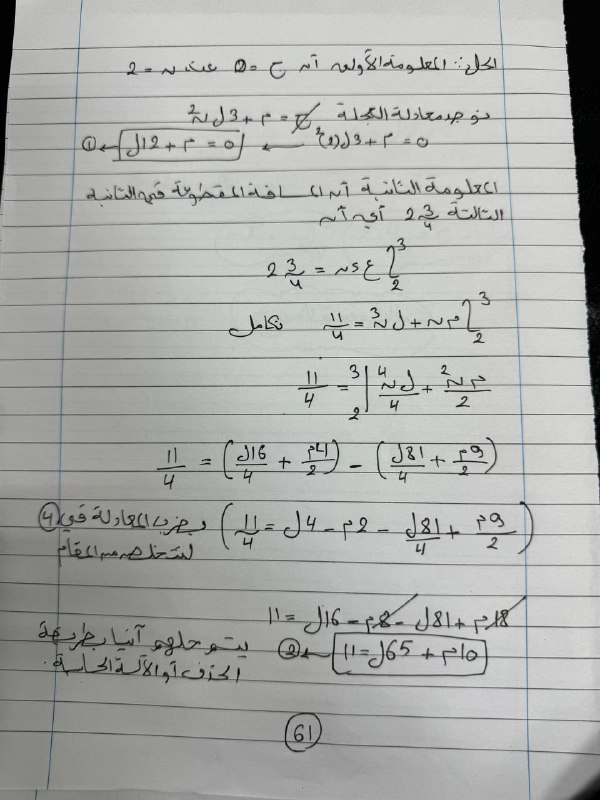 الحل:: المعلومة الأولى أن ج = 0 عند ن = 2
نوجد معادلة العجلة ج = م + 3ل ن²
0 = م + 3ل(2)² ← 0 = م + 12ل ← ①
المعلومة الثانية أن المسافة المقطوعة في الثانية
الثالثة 2 3/4 أي أن
∫₂³ ع ءن = 2 3/4
∫₂³ م ن + ل ن³ = 11/4 نكامل
م ن²/2 + ل ن⁴/4 |₂³ = 11/4
(9م/2 + 81ل/4) - (4م/2 + 16ل/4) = 11/4
(9م/2 + 81ل/4 - 2م - 4ل = 11/4) وبضرب المعادلة في ④
لنتخلص من المقام
18م + 81ل - 8م - 16ل = 11
10م + 65ل = 11 ← ② يتم حلهم آنيا بطريقة
الحذف أو الآلة الحاسبة.
61